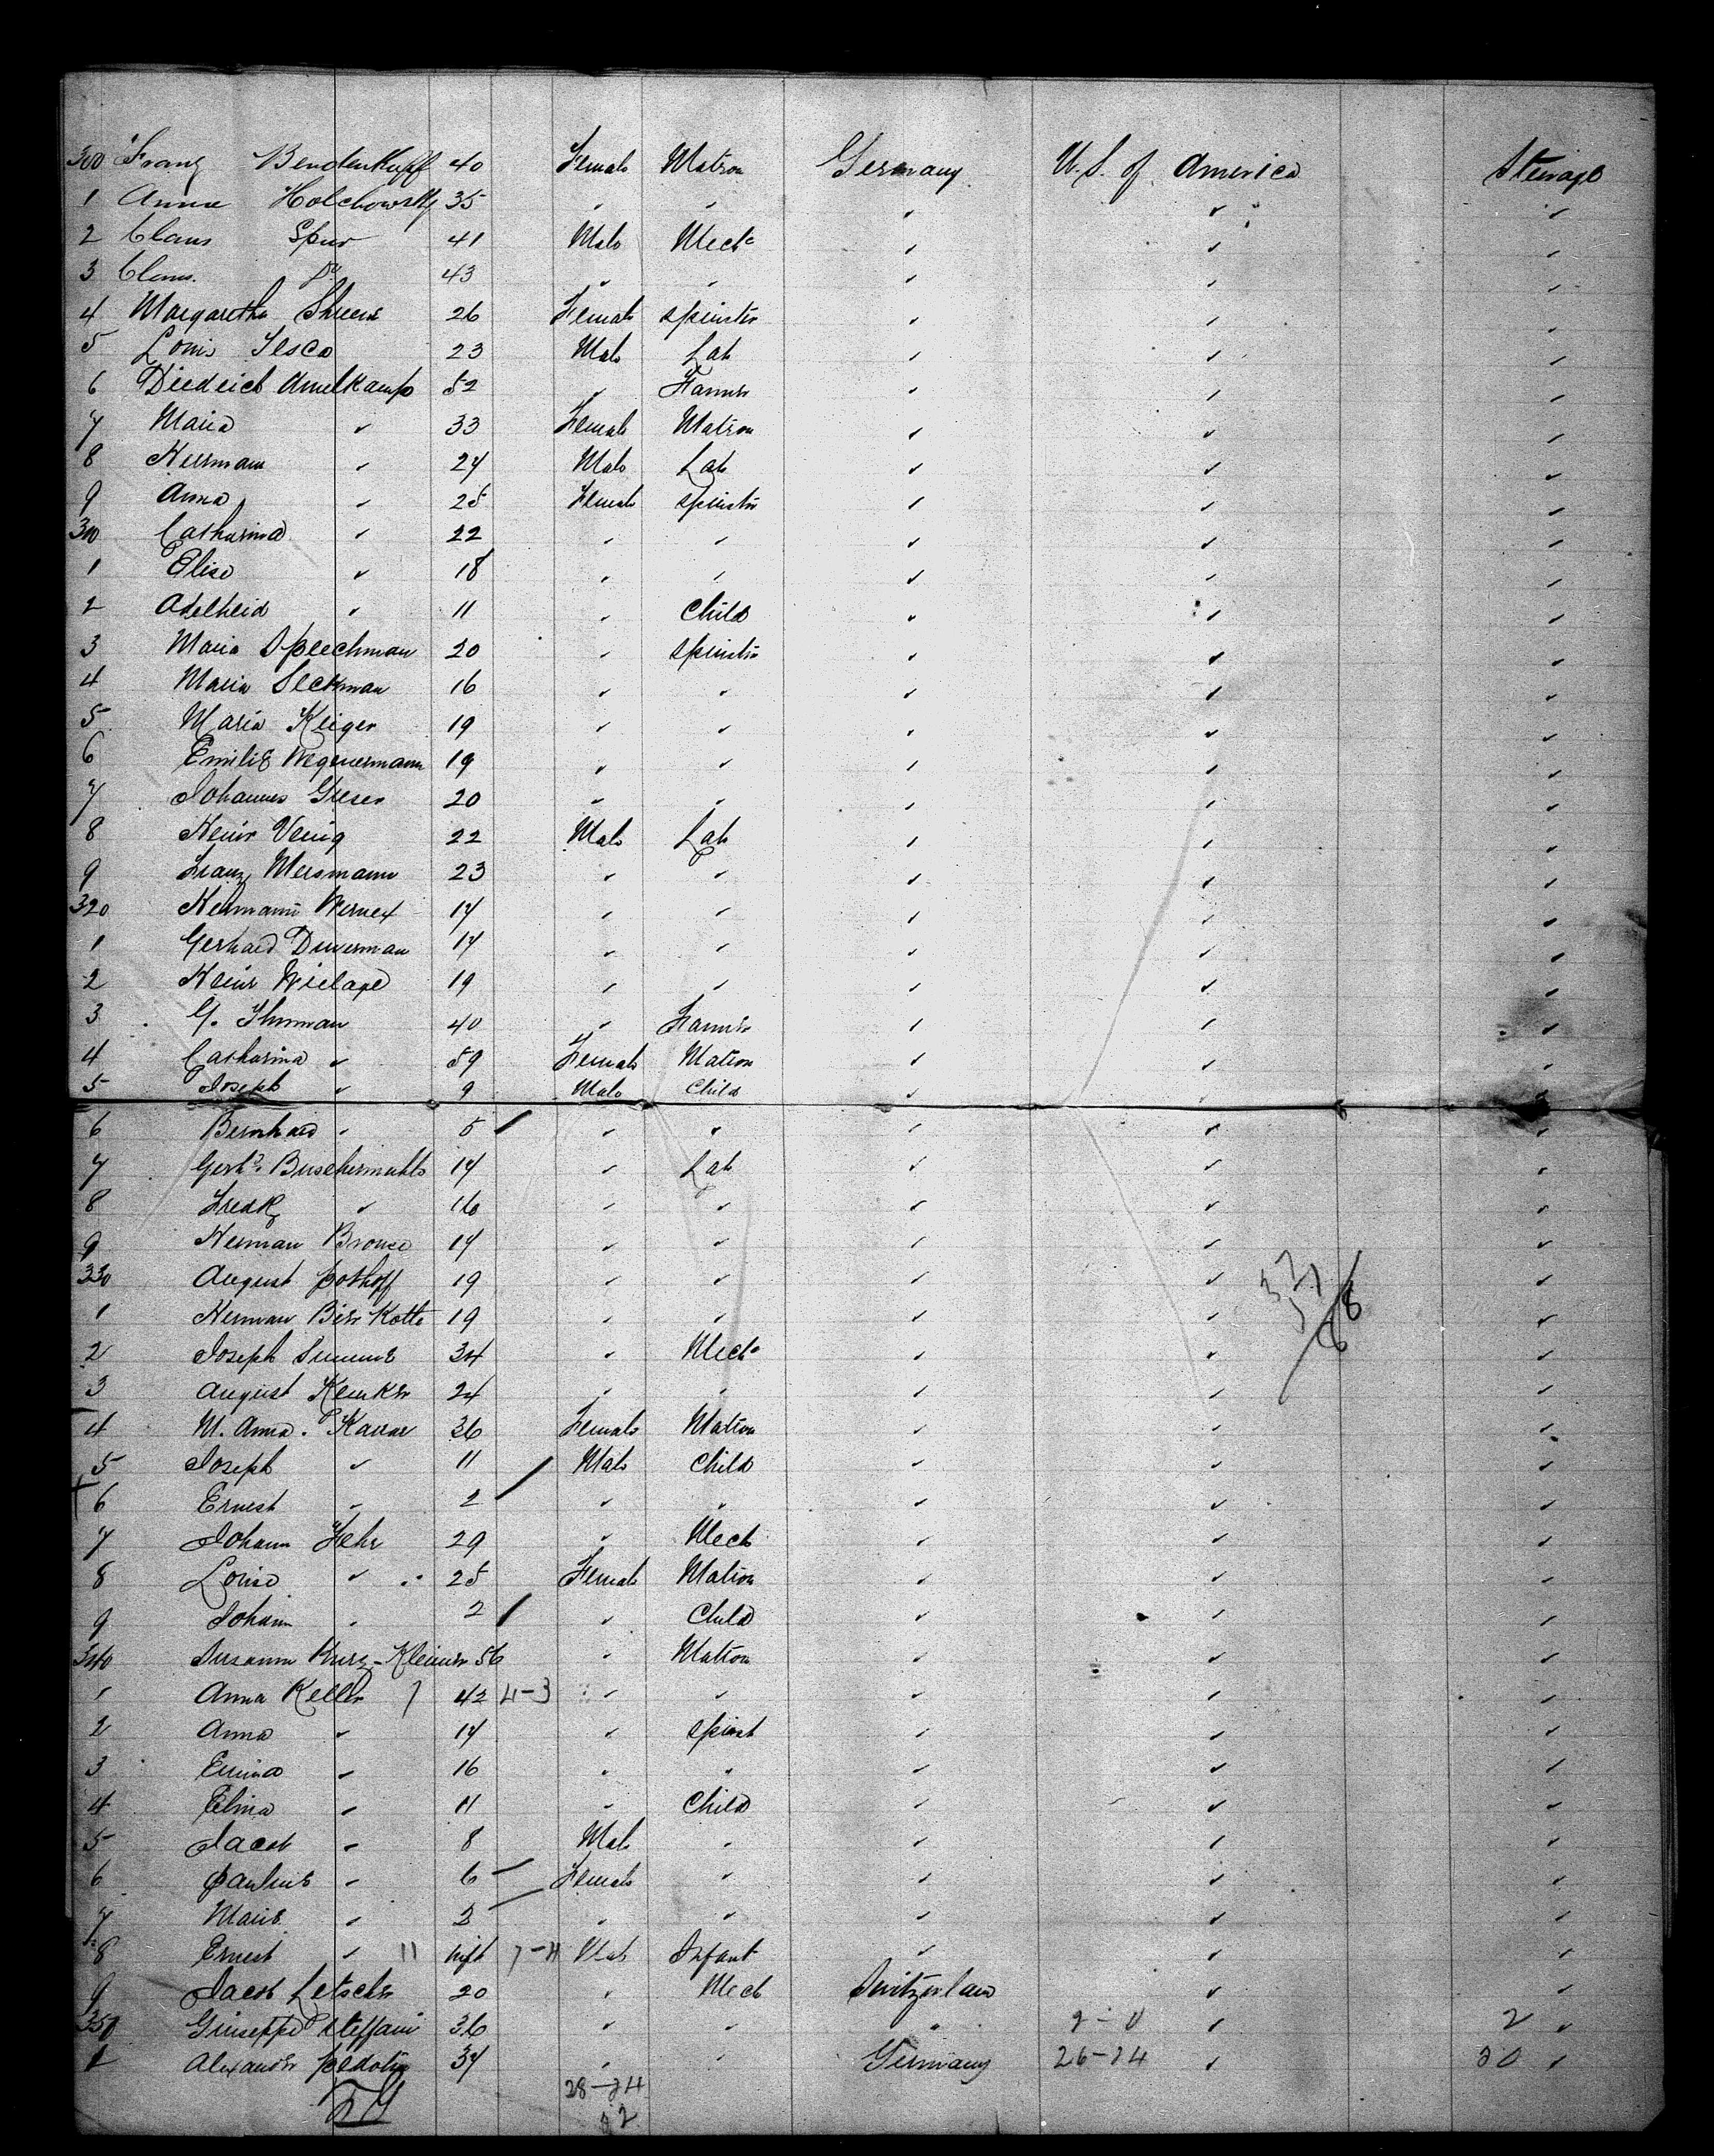 300 Franz Bendenkopff 40 Female Matron Germany U.S. of America Steerage
1 Anna Holchowsky 35 " " " " "
2 Claus Spur 41 Male Mech " " "
3 Claus Do 43 " " " " "
4 Margaretha 26 Female Spinster " " "
5 Louis 23 Male Lab " " "
6 Diedrich Amelkamp 52 " Farmer " " "
7 Maria " 33 Female Matron " " "
8 Herrmann " 24 Male Lab " " "
9 Anna " 25 Female Spinster " " "
300 Catharina " 22 " " " " "
1 Elise " 18 " " " " "
2 Adelheid " 11 " Child " " "
3 Maria Speechman 20 " Spinster " " "
4 Maria Seckman 16 " " " " "
5 Maria Kriger 19 " " " " "
6 Emilie Wegenermann 19 " " " " "
7 Johannes Greser 20 " " " " "
8 Heinr 22 Male Lab " " "
9 Franz Mersmann 23 " " " " "
320 Hermann 17 " " " " "
1 Gerhard Duverman 17 " " " " "
2 Heinr Wielage 19 " " " " "
3 G. Thurman 40 " Farmer " " "
4 Catharina " 59 Female Matron " " "
5 Joseph " 9 Male Child " " "
6 Bernhard " 5 " " " " "
7 Gerhd. Buschermuhle 17 " Lab " " "
8 Fredk " 16 " " " " "
9 Herman 17 " " " " "
330 August Pothoff 19 " " " " "
1 Herman Bier Kotte 19 " " " " "
2 Joseph 34 " Mech " " "
3 August Kemker 24 " " " " "
4 M. Anna 36 Female Matron " " "
5 Joseph " 11 Male Child " " "
6 Ernest " 2 " " " " "
7 Johann Fehr 29 " Mech " " "
8 Louise " 25 Female Matron " " "
9 Johann " 2 " Child " " "
340 Susanna Kurz-Kleiner 56 " Matron " " "
1 Anna Keller 42 4-3 " " " " "
2 Anna " 17 " Spinst " " "
3 Emma " 16 " " " " "
4 Elina " 11 " Child " " "
5 Jacob " 8 Male " " " "
6 Pauline " 6 Female " " " "
7 Marie " 2 " " " " "
8 Ernest " 11 Inft Male Infant " " "
9 Jacob Letscher 20 " Mech Switzerland " "
350 Giuseppe Steffani 36 " " " " 2 "
1 Alexander 37 " " Germany 26-24 " 30 "
28-24